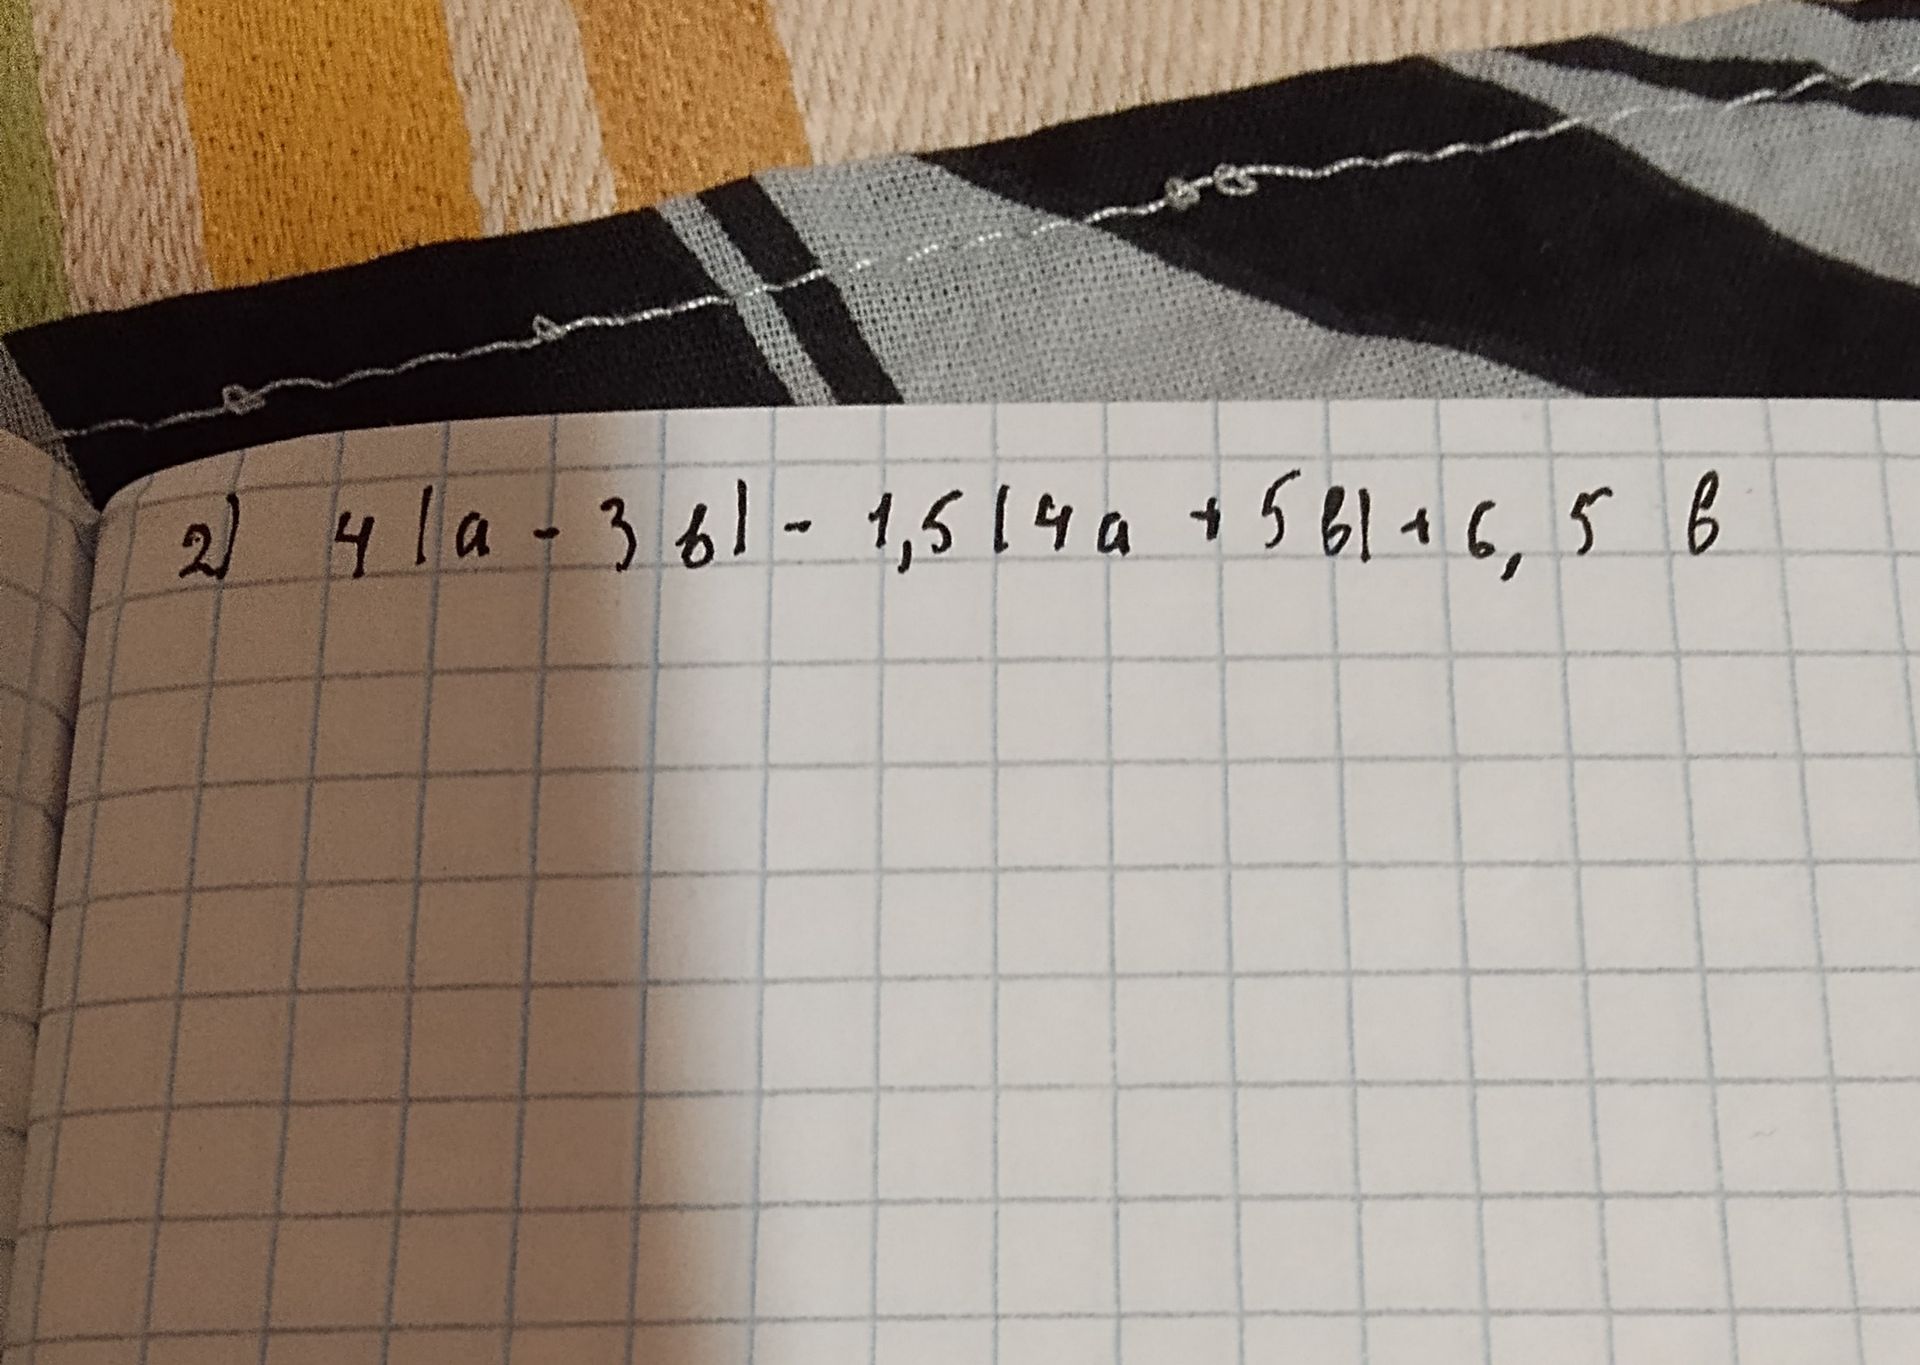 2) 4 (a - 3 b) - 1,5 (4 a + 5 b) + 6,5 b